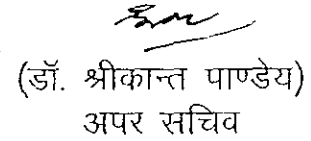 (डॉ. श्रीकान्त पाण्डेय)
अपर सचिव